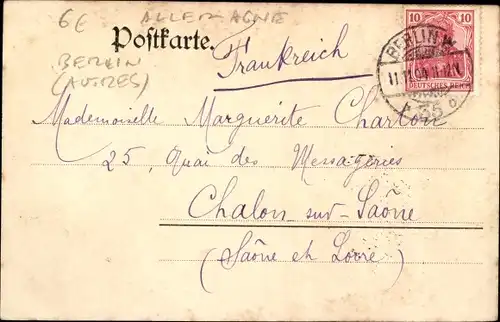 6€ ALLEMAGNE
Postkarte.
BERLIN
(AUTRES)
Frankreich
10 10
DEUTSCHES REICH
BERLIN W.
35
Mademoiselle Marguerite Charton
25, Quai des Messageries
Chalon-sur-Saône
(Saône et Loire)